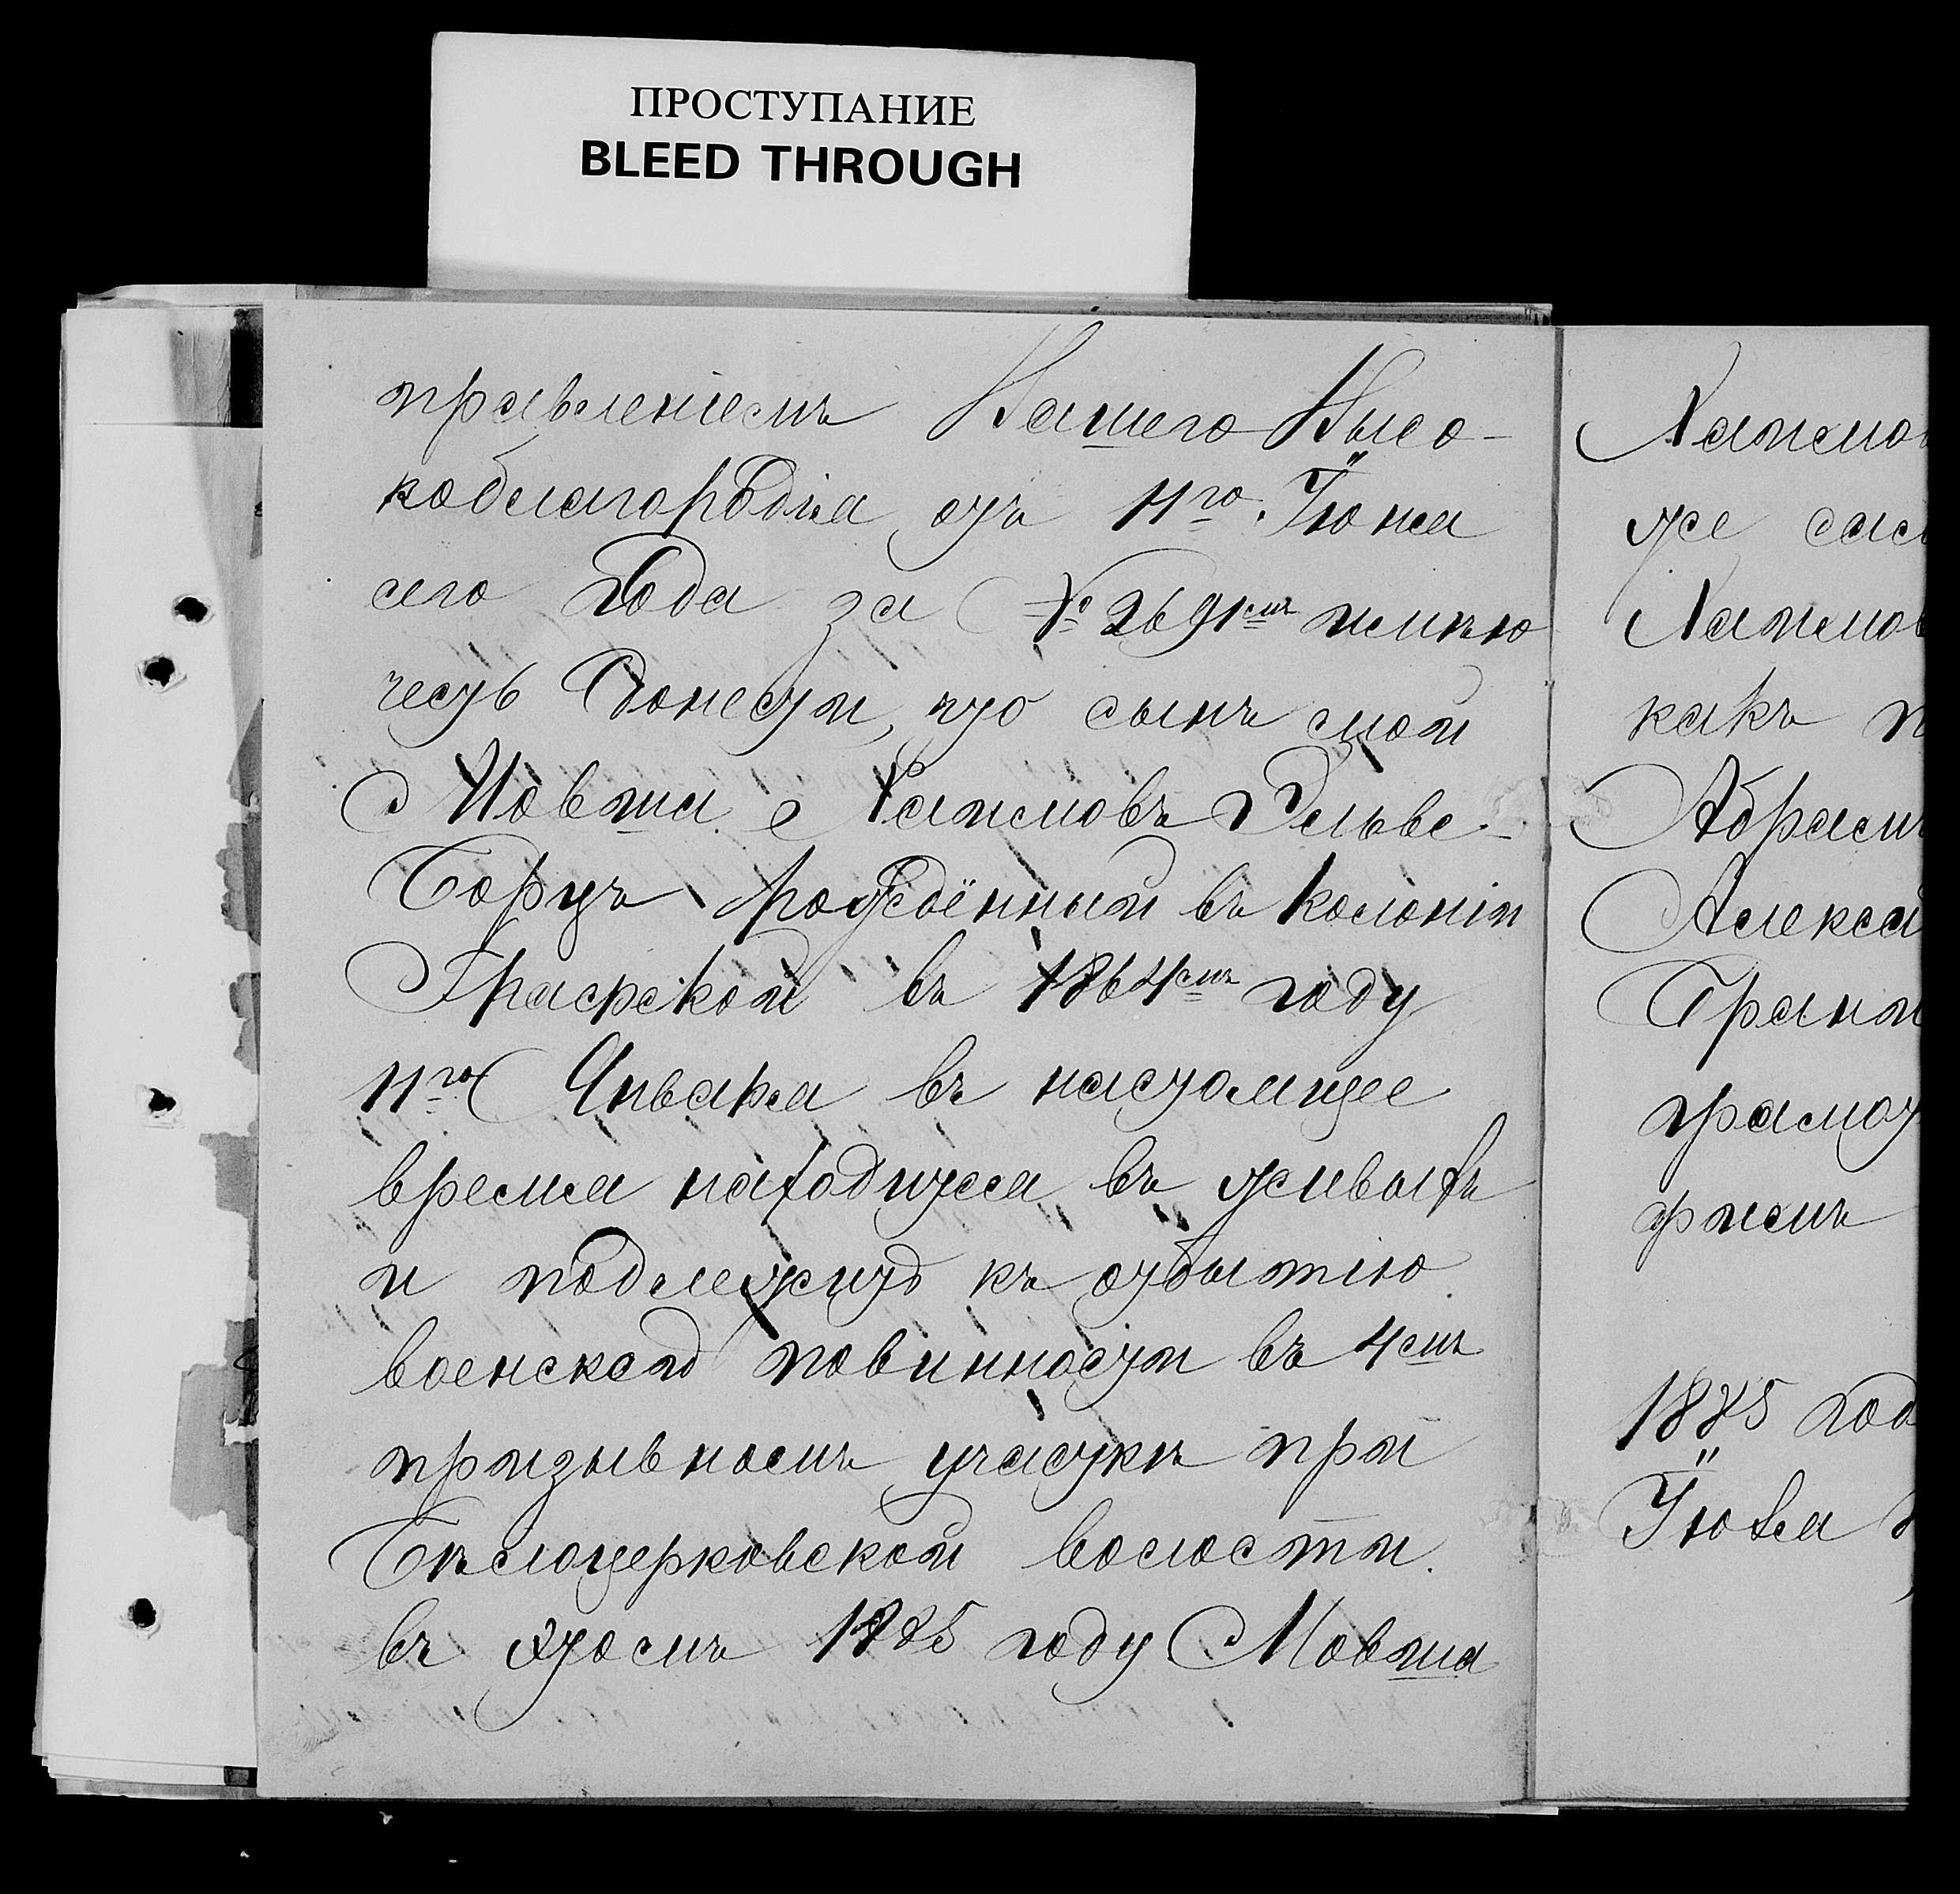 ПРОСТУПАНИЕ
BLEED THROUGH
правленiемъ Вашего Высо-
коблагородiя отъ 11го Iюня
сего года за № 2691емъ имѣю
честь донести, что сынъ мой
Мовша Хаимовъ Эльве-
Борцъ рождённый въ колонiи
Графской въ 1864емъ году
11го Января въ настоящее
время находится въ живыхъ
и подлежитъ къ отбытiю
военской повинности въ 4емъ
призывномъ участкѣ при
Бѣлоцерковской волости.
въ этомъ 1885 году Мовша
Хаимов
же
Хаимов
какъ
Абрамъ
Алекса
Грани
грамот
1885 год
Iюня